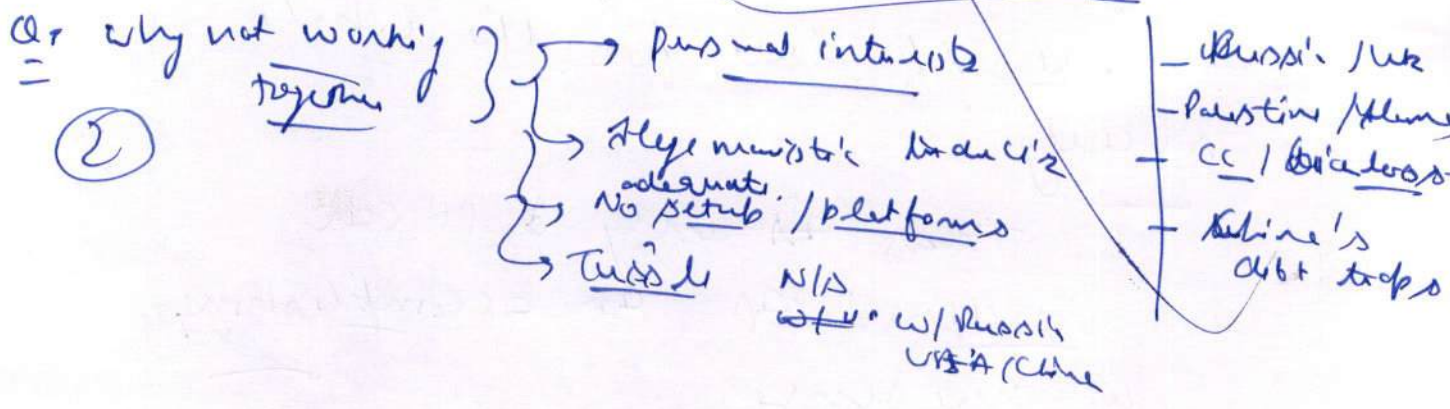 Q. why not working together
②
→ personal interests
→ Hegemonistic
→ No adequate setup / platforms
→ Tussle N/S
w/ Russia
USA / China
- Russia / Uk
- Palestine /
- CC /
- China's debt traps